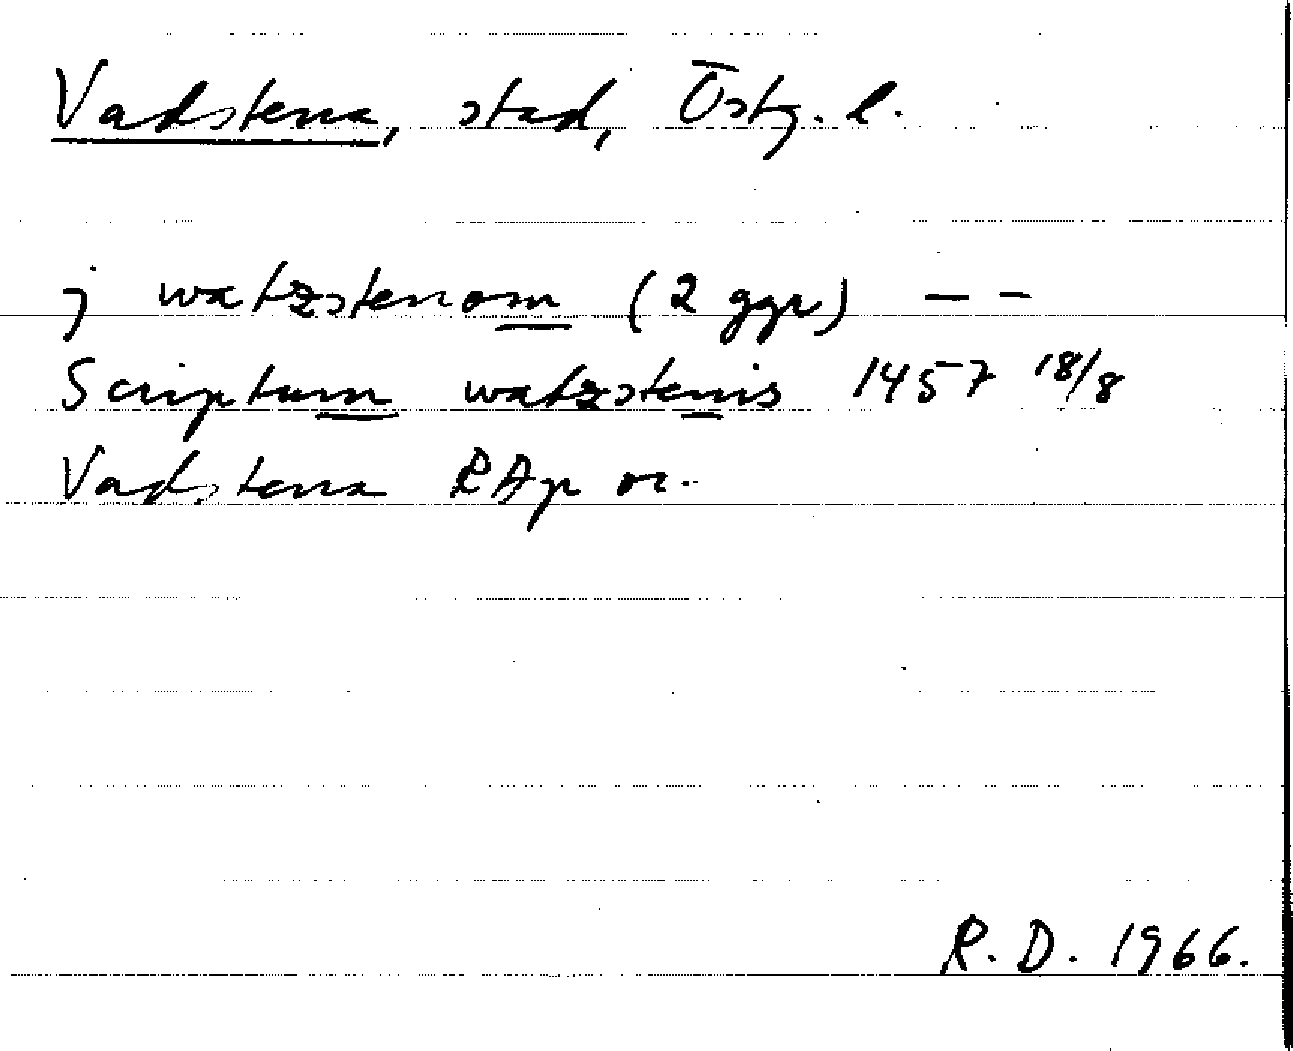 Vadstena, stad, Östg. l.
j watzstenom (2 ggr) – –
Scriptum watzstenis 1457 18/8
Vadstena RAp or.
R. D. 1966.